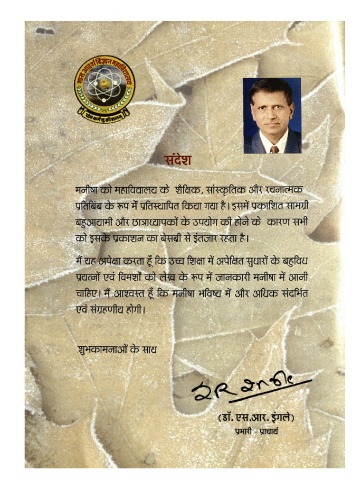 संदेश
मनीषा को महाविद्यालय के शैक्षिक, सांस्कृतिक और रचनात्मक
प्रतिबिंब के रूप में प्रतिस्थापित किया गया है। इसमें प्रकाशित सामग्री
बहुआयामी और छात्राध्यापकों के उपयोग की होने के कारण सभी
को इसके प्रकाशन का बेसब्री से इंतजार रहता है।
मैं यह अपेक्षा करता हूँ कि उच्च शिक्षा में अपेक्षित सुधारों के बहुविध
प्रयत्नों एवं विमर्शो को लेख के रूप में जानकारी मनीषा में आनी
चाहिए। मैं आश्वस्त हूँ कि मनीषा भविष्य में और अधिक संदर्भित
एवं संग्रहणीय होगी।
शुभकामनाओं के साथ
(डॉ. एस.आर. इंगले)
प्रभारी - प्राचार्य